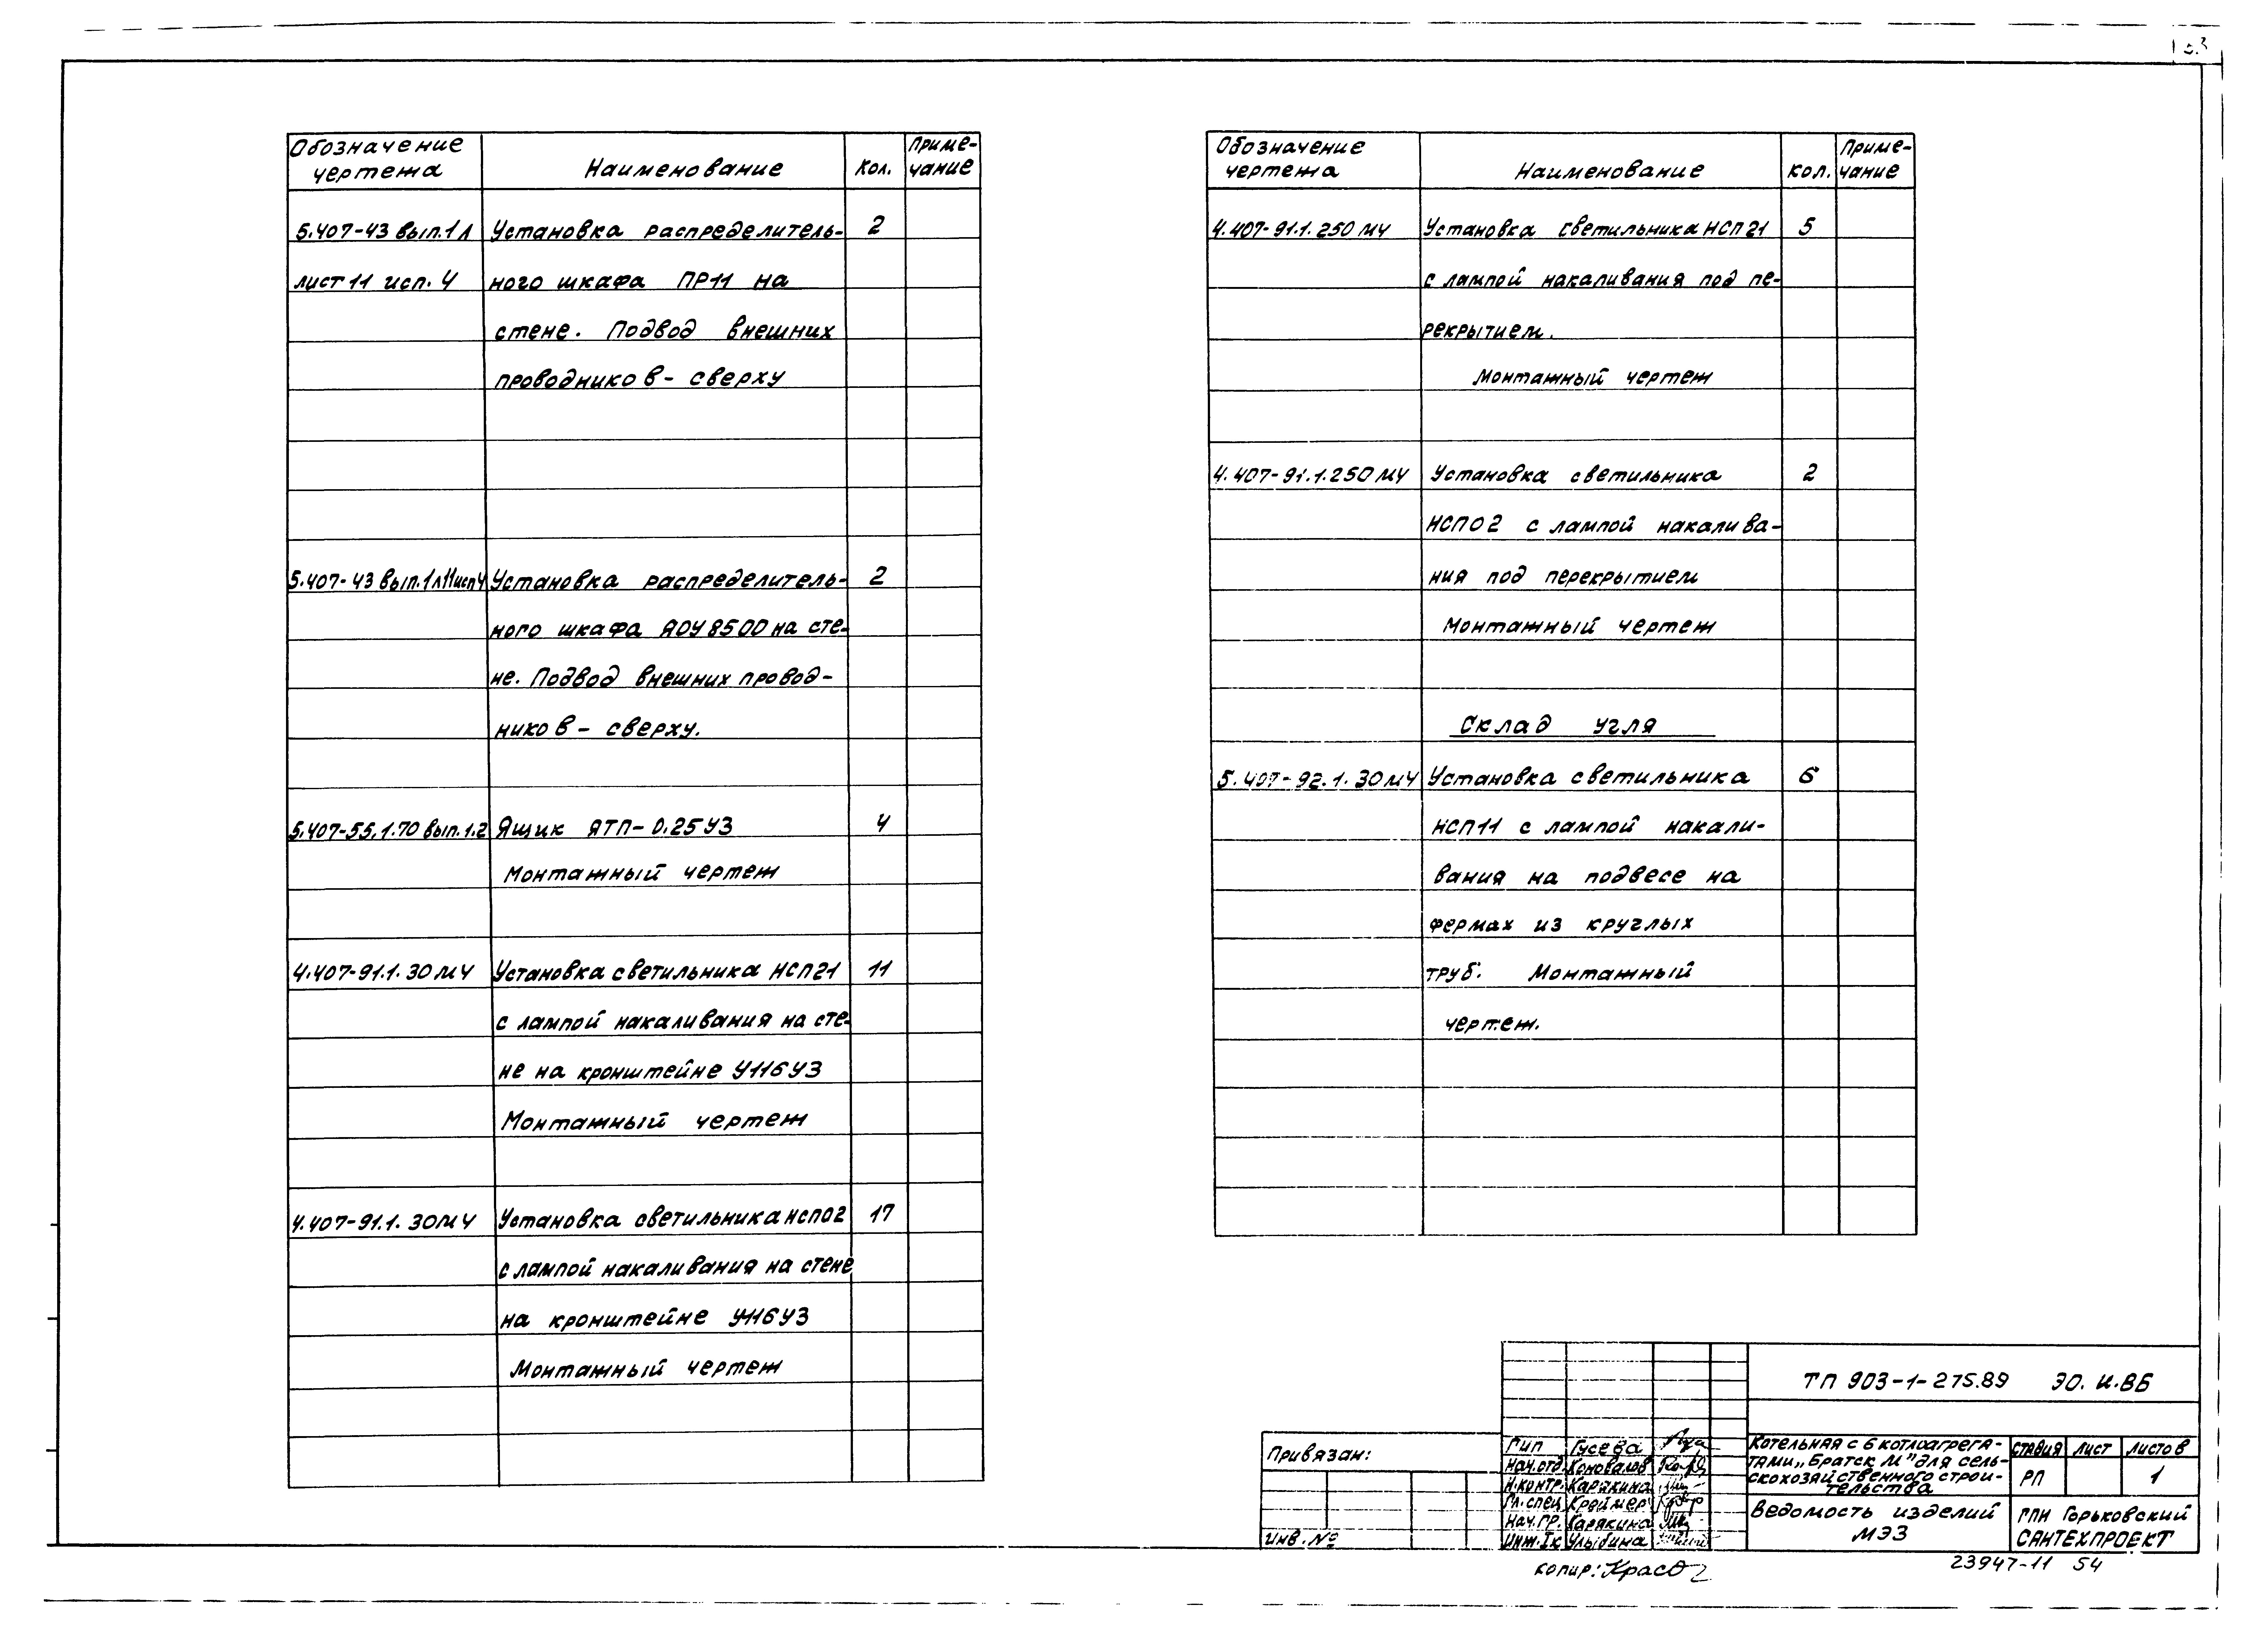 53
Обозначение чертежа Наименование Кол. Примечание
5.407-43 вып.1 л Установка распределитель- 2
лист 11 исп. 4 ного шкафа ПР11 на
стене. Подвод внешних
проводников - сверху
5.407-43 вып.1л11исп4 Установка распределитель- 2
ного шкафа ЯОУ8500 на сте-
не. Подвод внешних провод-
ников - сверху.
5.407-55.1.70 вып.1.2 Ящик ЯТП-0.25У3 4
Монтажный чертеж
4.407-91.1.30МЧ Установка светильника НСП21 11
с лампой накаливания на сте-
не на кронштейне У116У3
Монтажный чертеж
4.407-91.1.30МЧ Установка светильника НСП02 17
с лампой накаливания на стене
на кронштейне У116У3
Монтажный чертеж
Обозначение чертежа Наименование Кол. Примечание
4.407-91.1.250МЧ Установка светильника НСП21 5
с лампой накаливания под пе-
рекрытием.
Монтажный чертеж
4.407-91.1.250МЧ Установка светильника 2
НСП02 с лампой накалива-
ния под перекрытием
Монтажный чертеж
Склад угля
5.407-92.1.30МЧ Установка светильника 6
НСП11 с лампой накали-
вания на подвесе на
фермах из круглых
труб. Монтажный
чертеж.
ТП 903-1-275.89 ЭО.И.ВБ
Привязан:
Инв. №
ГИП Гусева
Нач.отд. Коновалов
Н.контр. Карякина
Гл.спец Креймер
Нач.гр. Карякина
Инж.Iк Улыбина
Котельная с 6 котлоагрега-
тами „Братск М" для сель-
скохозяйственного строи-
тельства
стадия лист листов
РП 1
Ведомость изделий
МЭЗ
ГПИ Горьковский
САНТЕХПРОЕКТ
копир:
23947-11 54